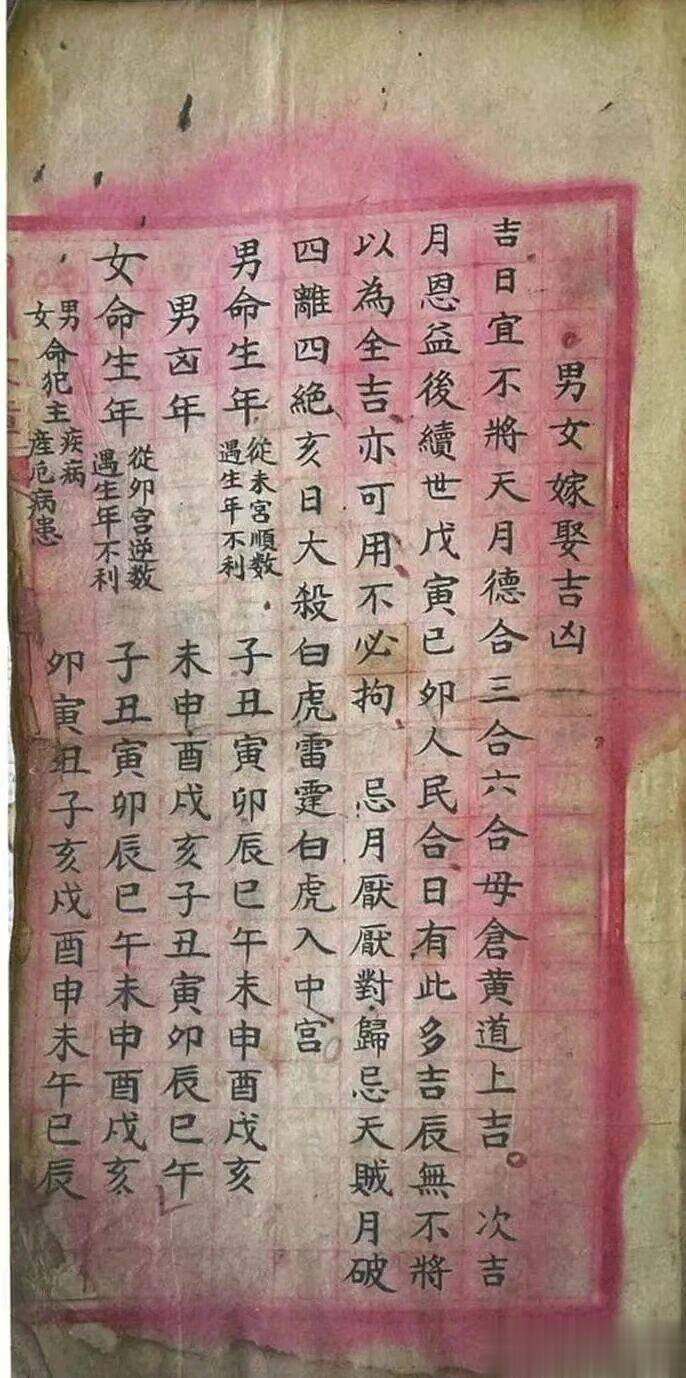 男女嫁娶吉凶
吉日宜不將天月德合三合六合母倉黄道上吉。次吉
月恩益後續世戊寅己卯人民合日有此多吉辰無不將
以為全吉亦可用不必拘 忌月厭厭對歸忌天賊月破
四離四絶亥日大殺白虎雷霆白虎入中宮
男命生年 從未宮順数 遇生年不利 子丑寅卯辰巳午未申酉戌亥
男凶年 未申酉戌亥子丑寅卯辰巳午
女命生年 從卯宮逆数 遇生年不利 子丑寅卯辰巳午未申酉戌亥
男女命犯主疾病產厄病患 卯寅丑子亥戌酉申未午巳辰